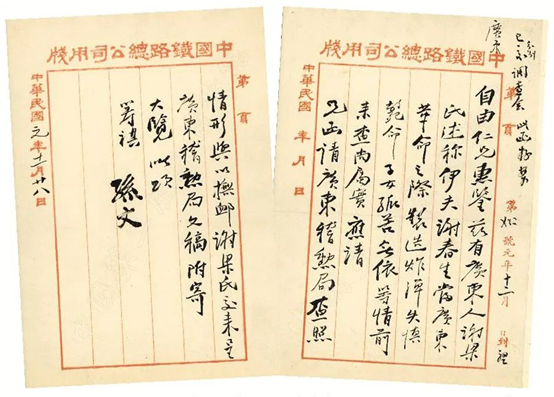 中國鐵路總公司用牋
自由仁兄惠鑒茲有廣東人謝梁
氏述稱伊夫謝春生當廣東
革命之際製造炸彈失慎
斃命子女孤苦無依等情前
來查尚屬實應請
兄函請廣東稽勲局查照
第 頁
中華民國 年 月 日
廣東
已交調查會
第 號元年十二月 日
中國鐵路總公司用牋
情形與以撫卹謝梁氏交來呈
廣東稽勲局文稿附寄
大覽此頌
籌祺
孫文
第 頁
中華民國元年十二月廿八日